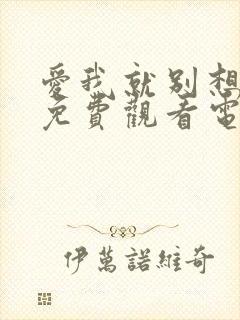 愛我就別想
免費觀看電
伊萬諾維奇